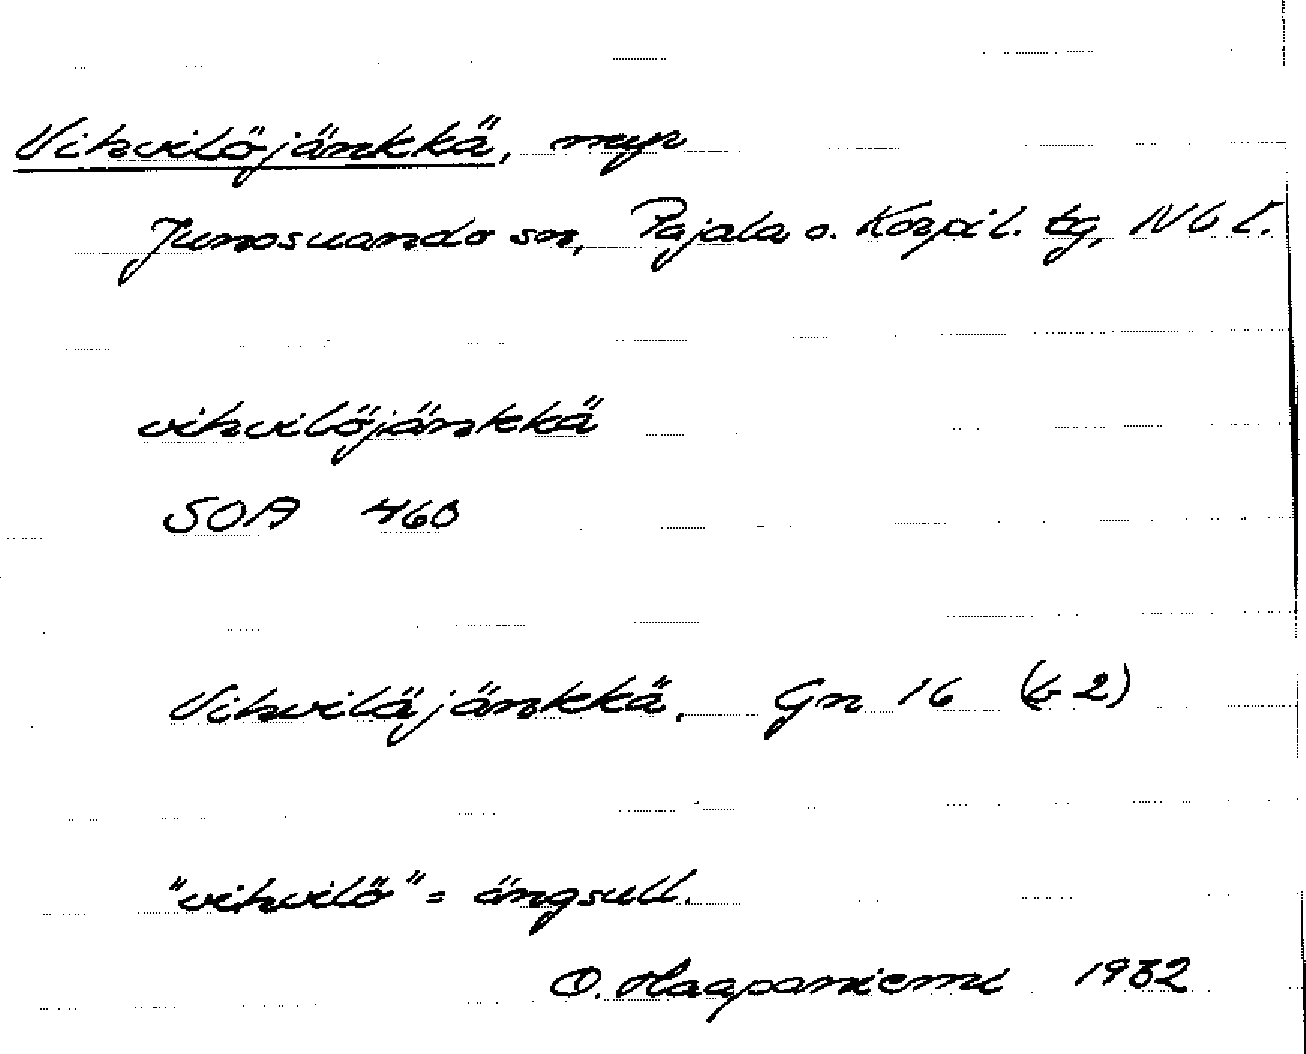 Vihvilöjänkkä, myr
Junosuando sn, Pajala o. Korpil. tg, Nb l.
vihvilöjänkkä
SOA 460
Vihviläjänkkä. Gn 16 (b2)
"vihvilö" = ängsull.
O. Haapaniemi 1932